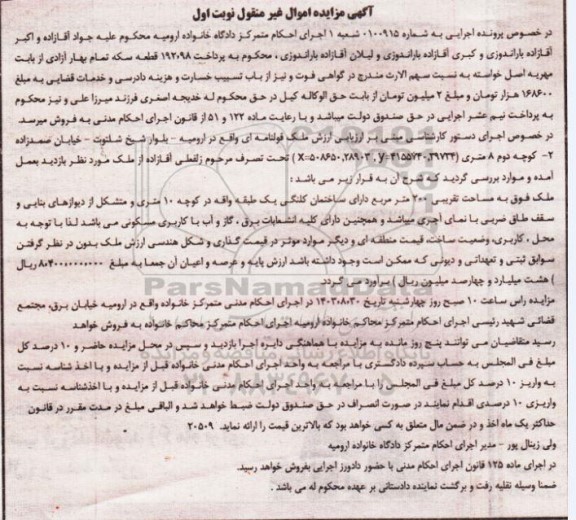 آگهی مزایده اموال غیر منقول نوبت اول
در خصوص پرونده اجرایی به شماره ۰۱۰۰۹۱۵ شعبه ۱ اجرای احکام متمرکز دادگاه خانواده ارومیه محکوم علیه جواد آقازاده و اکبر
آقازاده باراندوزی و کبری آقازاده باراندوزی و لیلان آقازاده باراندوزی ، محکوم به پرداخت ۱۹۲.۹۸ قطعه سکه تمام بهار آزادی از بابت
مهریه اصل خواسته به نسبت سهم الارث مندرج در گواهی فوت و نیز از باب تسبیب خسارت و هزینه دادرسی و خدمات قضایی به مبلغ
۱۶۸۶۰۰ هزار تومان و مبلغ ۲ میلیون تومان از بابت حق الوکاله کیل در حق محکوم له خدیجه اصغری فرزند میرزا علی و نیز محکوم
به پرداخت نیم عشر اجرایی در حق صندوق دولت میباشد و با رعایت ماده ۱۲۲ و ۵۱ از قانون اجرای احکام مدنی به فروش میرسد
در خصوص اجرای دستور کارشناسی مبنی بر ارزیابی ارزش ملک قولنامه ای واقع در ارومیه - بلوار شیخ شلتوت - خیابان صمدزاده
۲- کوچه دوم ۸ متری (X=۵۰۸۶۵۰.۲۸۹۰۳ , Y=۴۱۵۵۷۴۰.۳۹۷۳۳) تحت تصرف مرحوم زلفعلی آقازاده از ملک مورد نظر بازدید بعمل
آمده و موارد بررسی گردید که شرح آن به قرار زیر می باشد :
ملک فوق به مساحت تقریبی ۲۰۰ متر مربع دارای ساختمان کلنگی یک طبقه واقع در کوچه ۱۰ متری و متشکل از دیوارهای بنایی و
سقف طاق ضربی با نمای آجری میباشد و همچنین دارای کلیه انشعابات برق ، گاز و آب با کاربری مسکونی می باشد لذا با توجه به
محل ، کاربری، وضعیت ساخت، قیمت منطقه ای و دیگر موارد موثر در قیمت گذاری و شکل هندسی ارزش ملک بدون در نظر گرفتن
سوابق ثبتی و تعهداتی و دیونی که ممکن است وجود داشته باشد ارزش پایه و عرصه و اعیان آن جمعا به مبلغ ۸۰۴۰۰.۰۰۰.۰۰۰ ریال
) هشت میلیارد و چهارصد میلیون ریال ) برآورد می گردد.
مزایده راس ساعت ۱۰ صبح روز چهارشنبه تاریخ ۱۴۰۳۰۸۰۳۰ در اجرای احکام مدنی متمرکز خانواده واقع در ارومیه خیابان برق، مجتمع
قضائی شهید رئیسی اجرای احکام متمرکز محاکم خانواده ارومیه اجرای احکام متمرکز محاکم خانواده به فروش خواهد
رسید متقاضیان می توانند پنج روز مانده به مزایده با هماهنگی دایره اجرا بازدید و سپس در محل مزایده حاضر و ۱۰ درصد کل
مبلغ فی المجلس به حساب سپرده دادگستری با مراجعه به واحد اجرای احکام مدنی خانواده قبل از مزایده و با اخذ شناسه نسبت
به واریز ۱۰ درصد کل مبلغ فی المجلس را با مراجعه به واحد اجرای احکام مدنی خانواده قبل از مزایده و با اخذشناسه نسبت به
واریزی ۱۰ درصدی اقدام نمایند در صورت انصراف در حق صندوق دولت ضبط خواهد شد و الباقی مبلغ در مدت مقرر در قانون
حداکثر یک ماه اخذ و در ضمن مال متعلق به کسی خواهد بود که بالاترین قیمت را ارائه نماید. ۲۰۵۰۹
ولی زینال پور - مدیر اجرای احکام متمرکز دادگاه خانواده ارومیه
در اجرای ماده ۱۲۵ قانون اجرای احکام مدنی با حضور دادورز اجرایی بفروش خواهد رسید.
ضمنا وسیله نقلیه رفت و برگشت نماینده دادستانی بر عهده محکوم له می باشد .
ParsNamadData
پایگاه اطلاع رسانی مناقصه و مزایده